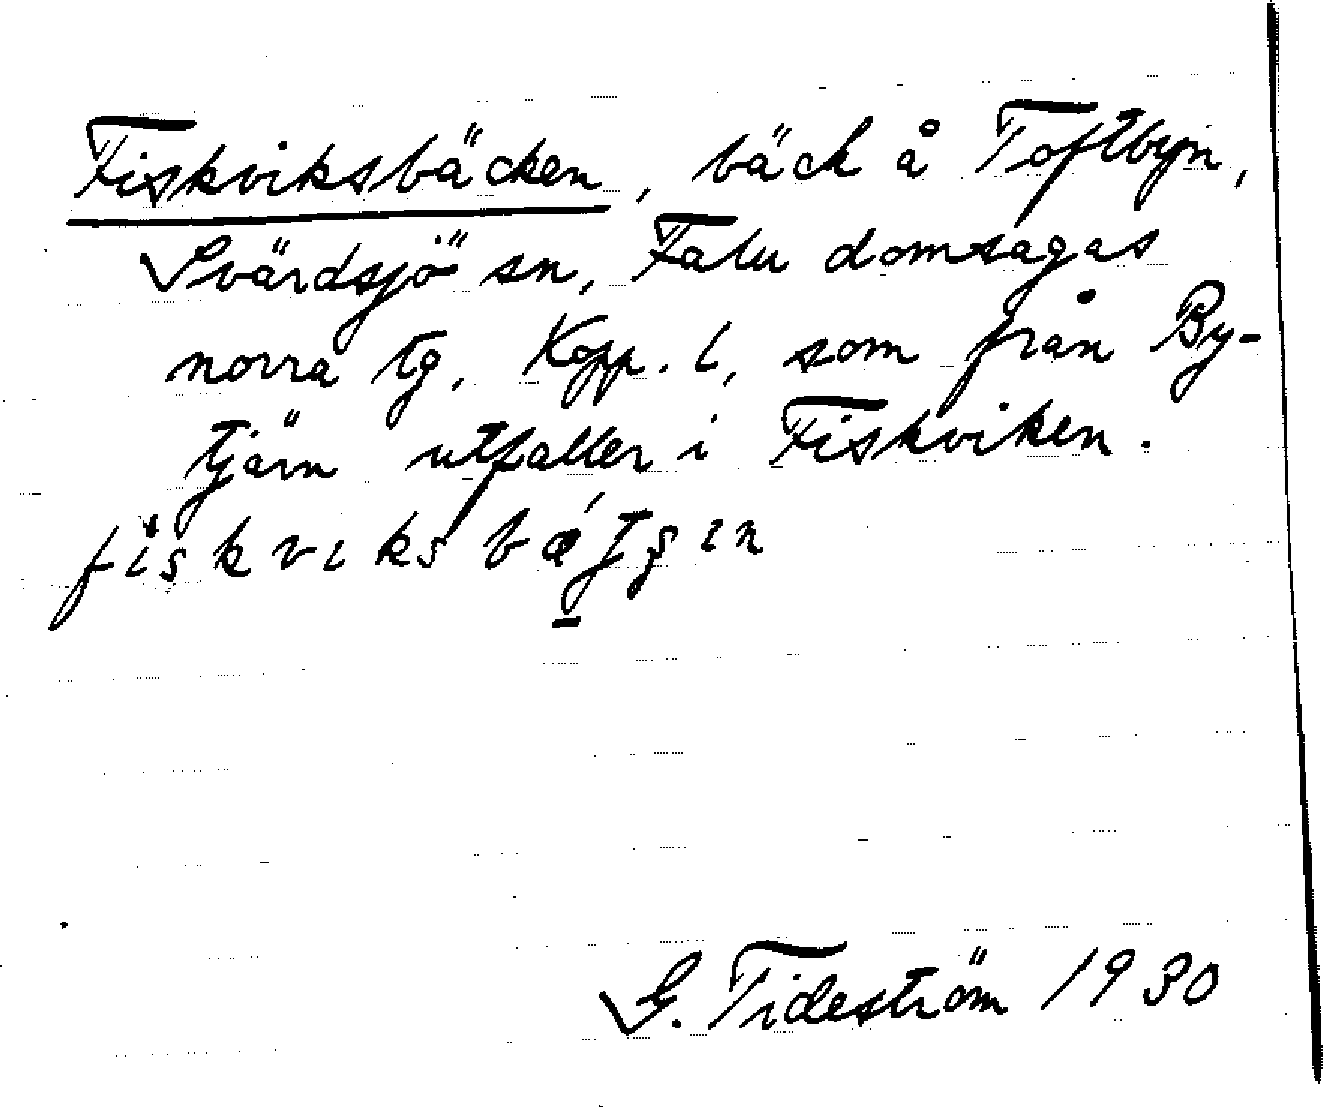 Fiskviksbäcken, bäck å Toftbyn,
Svärdsjö sn, Falu domsagas
norra tg, Kopp. l, som från By-
tjärn utfaller i Fiskviken.
G. Tideström 1930